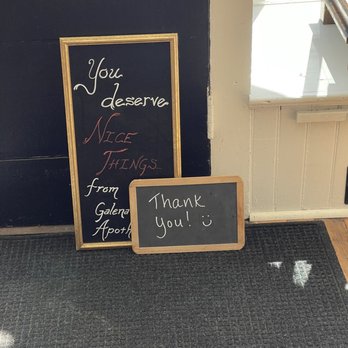 You
deserve
NICE
THINGS
from
Galena
Thank
You! :)